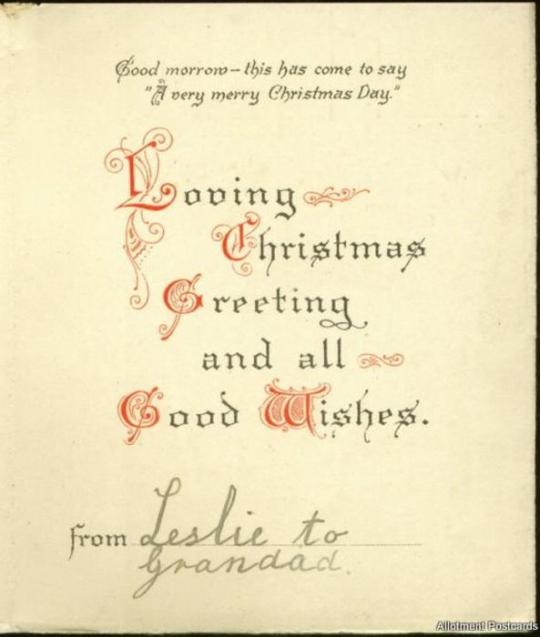 Good morrow – this has come to say
"A very merry Christmas Day."
Loving
Christmas
Greeting
and all
Good Wishes.
from Leslie to
Grandad.
Allotment Postcards